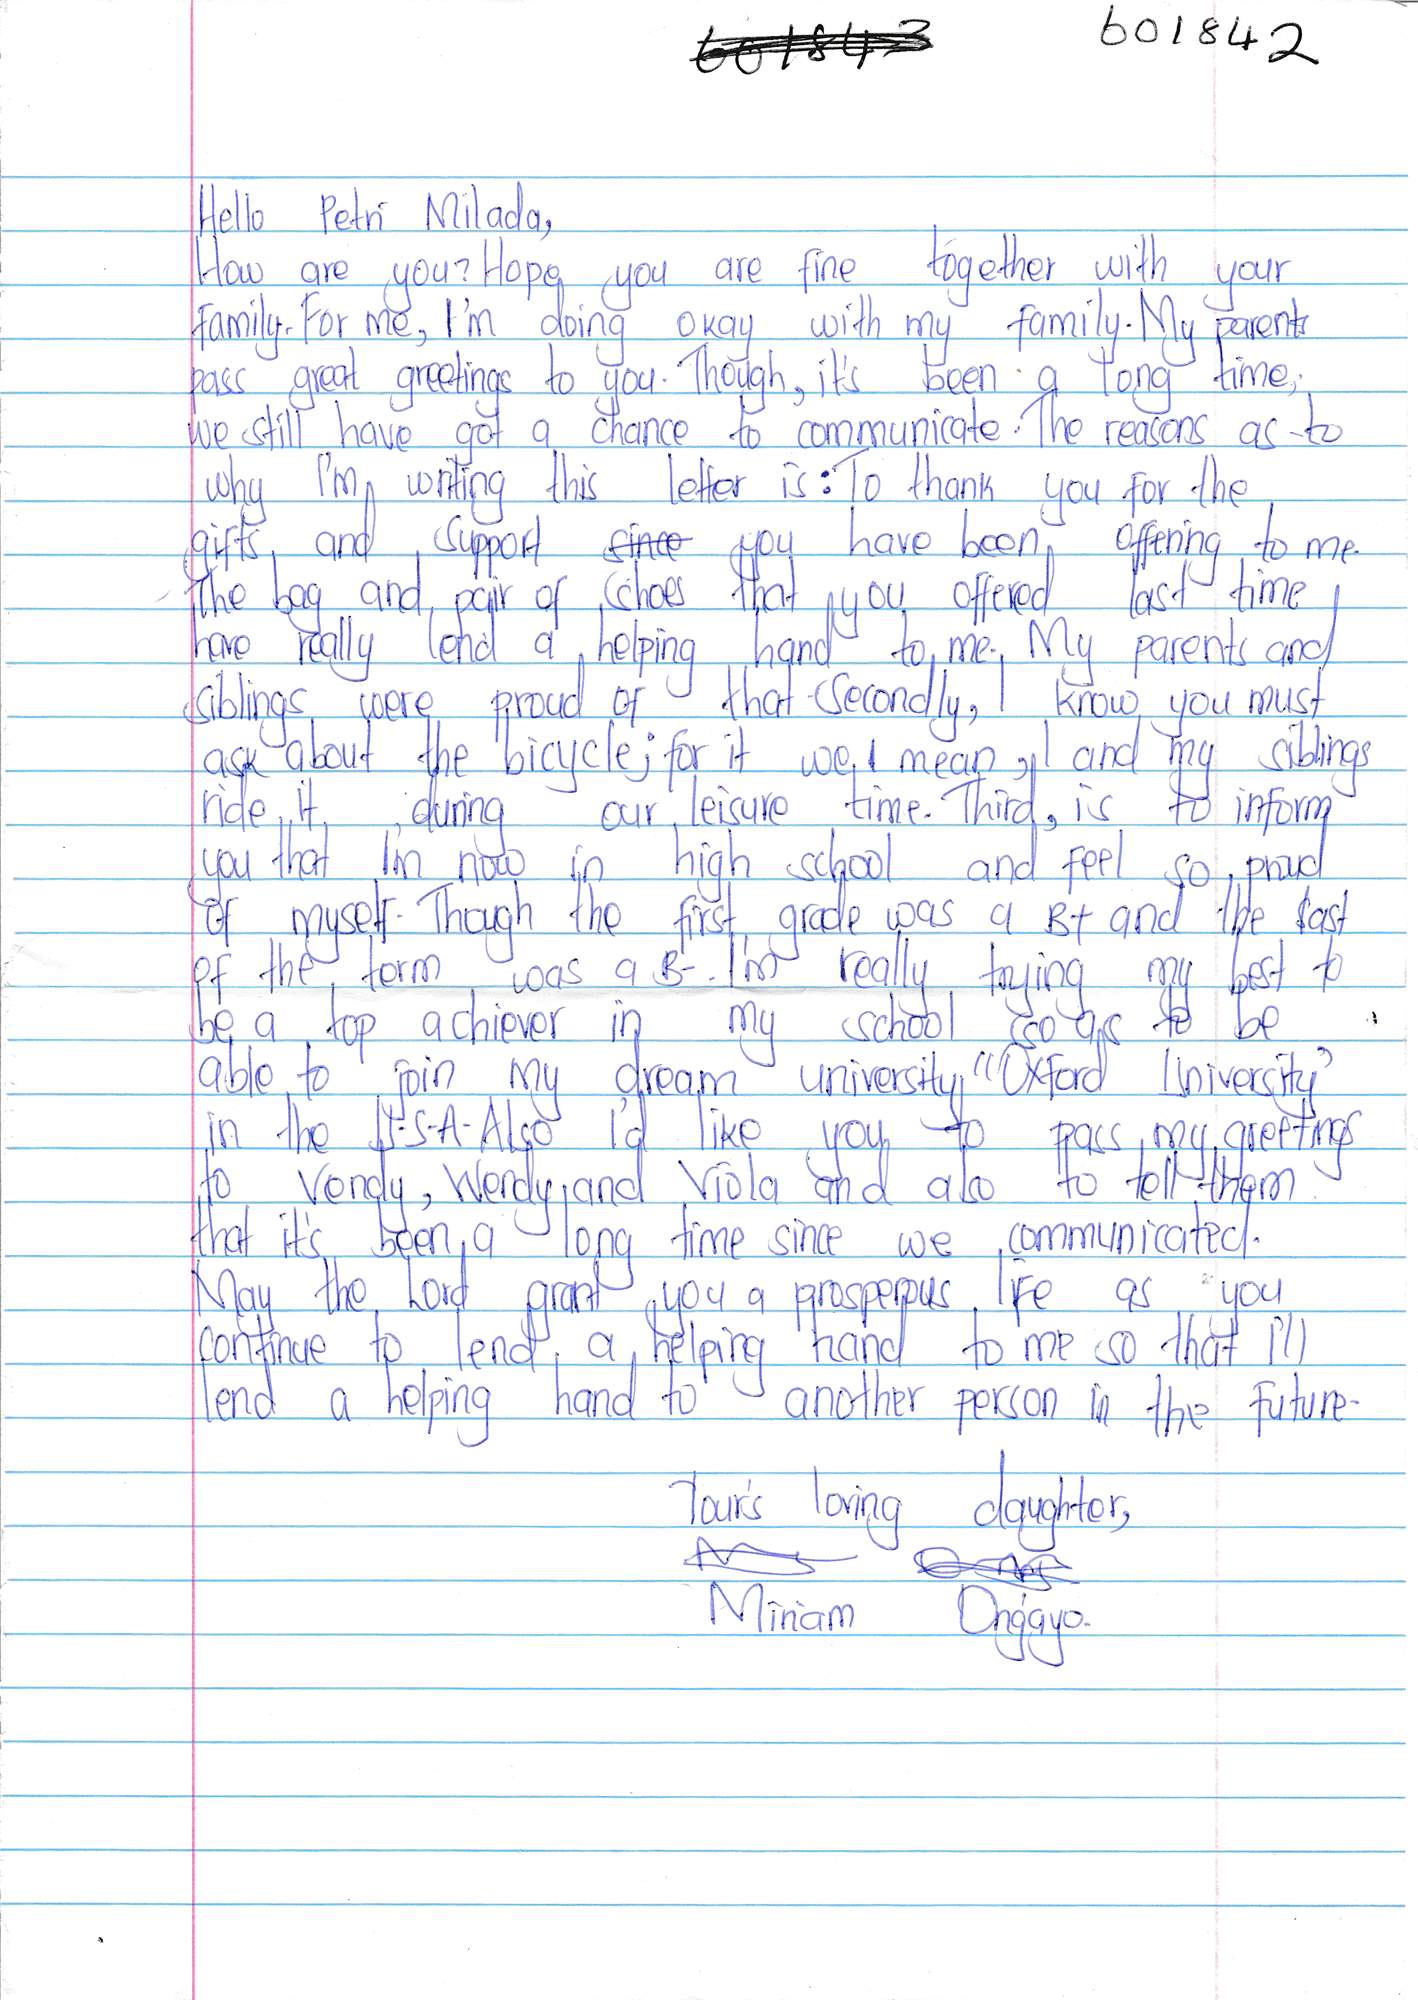 601842
Hello Petri Milada,
How are you? Hope you are fine together with your
family. For me, I'm doing okay with my family. My parents
pass great greetings to you. Though, it's been a long time,
we still have got a chance to communicate. The reasons as to
why I'm writing this letter is: To thank you for the
gifts and support since you have been offering to me.
The bag and pair of schoes that you offered last time
have really lend a helping hand to me. My parents and
siblings were proud of that. Secondly, I know you must
ask about the bicycle; for it we, I mean, I and my siblings
ride it during our leisure time. Third, is to inform
you that I'm now in high school and feel so proud
of myself. Though the first grade was a B+ and the last
of the term was a B-. I'm really trying my best to
be a top achiever in my school so as to be
able to join my dream university "Oxford University"
in the U.S.A. Also I'd like you to pass my greetings
to Vendy, Wendy and Viola and also to tell them
that it's been a long time since we communicated.
May the Lord grant you a prosperous life as you
continue to lend a helping hand to me so that I'll
lend a helping hand to another person in the future.
Your's loving daughter,
Miriam Ong'ayo.